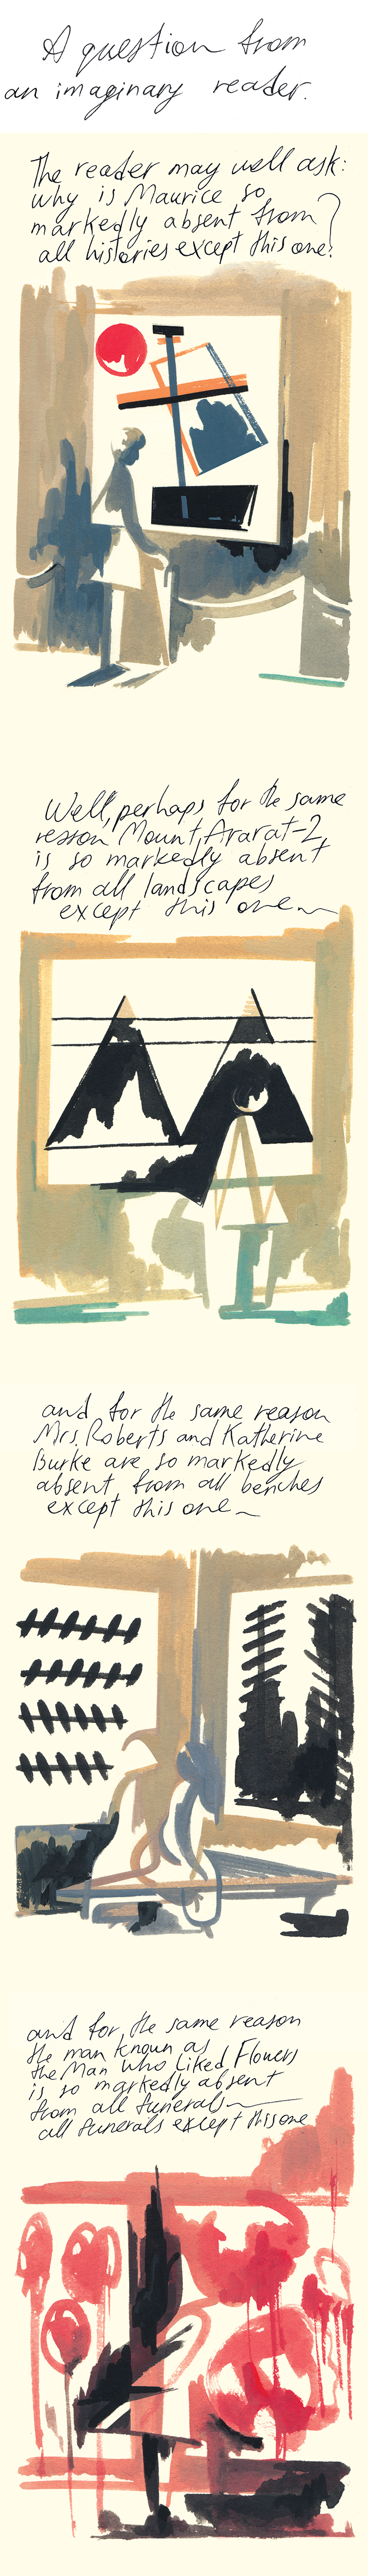 A question from
an imaginary reader.
The reader may well ask:
why is Maurice so
markedly absent from
all histories except this one?
Well, perhaps for the same
reason Mount Ararat-2
is so markedly absent
from all landscapes
except this one
and for the same reason
Mrs. Roberts and Katherine
Burke are so markedly
absent from all benches
except this one
and for the same reason
the man known as
the Man Who Liked Flowers
is so markedly absent
from all funerals
all funerals except this one